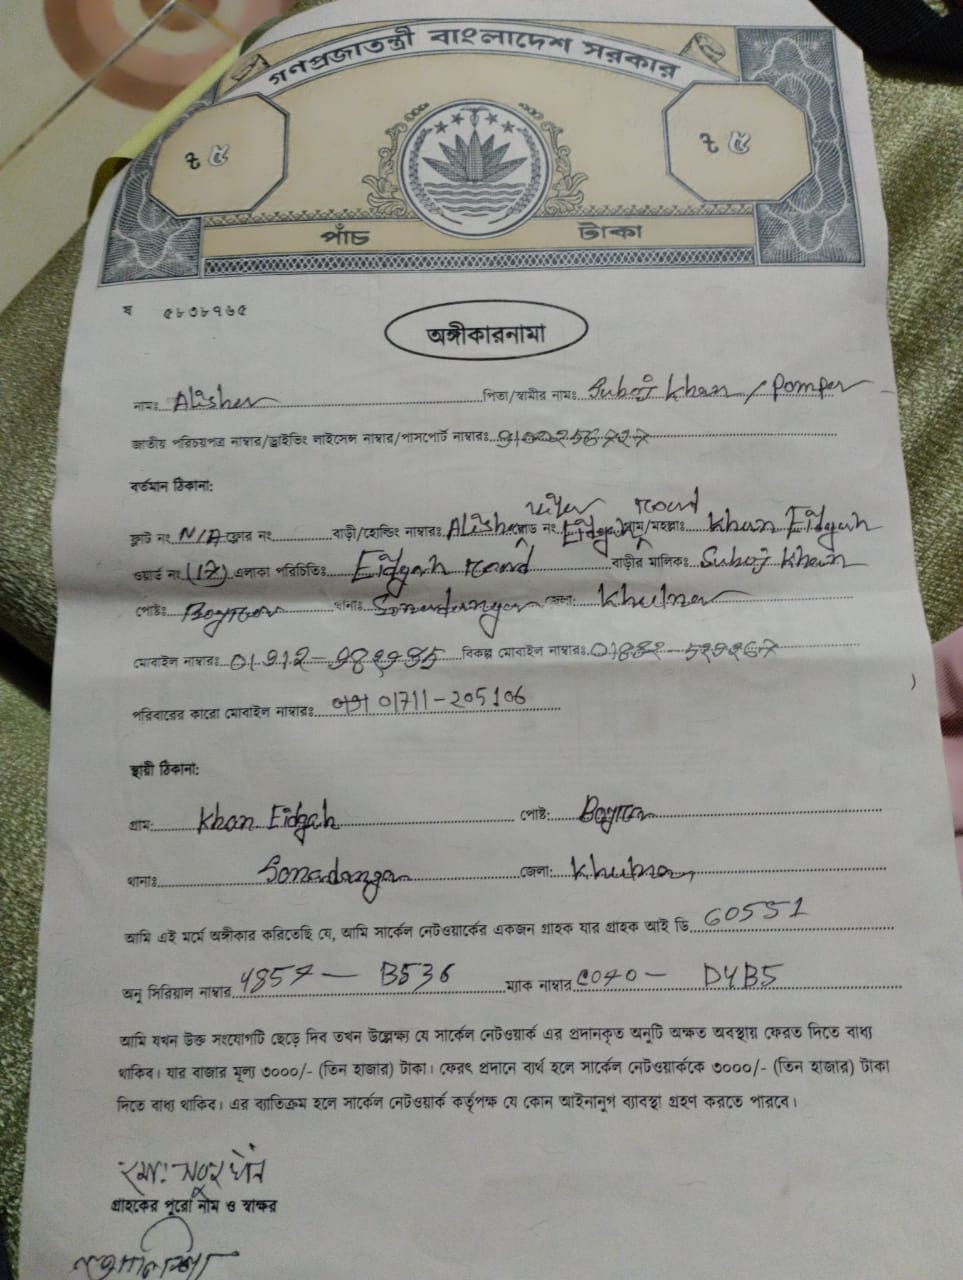 গণপ্রজাতন্ত্রী বাংলাদেশ সরকার
৳ ৫ ৳ ৫
পাঁচ টাকা
ষ ৫৮৩৮৭৬৫
অঙ্গীকারনামা
নামঃ Alisher পিতা/স্বামীর নামঃ Suboj Khan / Pomper
জাতীয় পরিচয়পত্র নাম্বার/ড্রাইভিং লাইসেন্স নাম্বার/পাসপোর্ট নাম্বারঃ
বর্তমান ঠিকানা:
road
ফ্লাট নং N/A ফ্লোর নং বাড়ী/হোল্ডিং নাম্বারঃ Alisher রোড নং Eidgah গ্রাম/মহল্লাঃ Khan Eidgah
ওয়ার্ড নং (17) এলাকা পরিচিতিঃ Eidgah road বাড়ীর মালিকঃ Suboj Khan
পোষ্টঃ Boyra থানাঃ Sonadanga জেলা: Khulna
মোবাইল নাম্বারঃ বিকল্প মোবাইল নাম্বারঃ
পরিবারের কারো মোবাইল নাম্বারঃ 01711-205106
স্থায়ী ঠিকানা:
গ্রাম: Khan Eidgah পোষ্ট: Boyra
থানাঃ Sonadanga জেলা: Khulna
আমি এই মর্মে অঙ্গীকার করিতেছি যে, আমি সার্কেল নেটওয়ার্কের একজন গ্রাহক যার গ্রাহক আই ডি 60551
অনু সিরিয়াল নাম্বার 4857 - B536 ম্যাক নাম্বার C070 - D4B5
আমি যখন উক্ত সংযোগটি ছেড়ে দিব তখন উল্লেক্ষ্য যে সার্কেল নেটওয়ার্ক এর প্রদানকৃত অনুটি অক্ষত অবস্থায় ফেরত দিতে বাধ্য
থাকিব। যার বাজার মূল্য ৩০০০/- (তিন হাজার) টাকা। ফেরৎ প্রদানে ব্যর্থ হলে সার্কেল নেটওয়ার্ককে ৩০০০/- (তিন হাজার) টাকা
দিতে বাধ্য থাকিব। এর ব্যাতিক্রম হলে সার্কেল নেটওয়ার্ক কর্তৃপক্ষ যে কোন আইনানুগ ব্যাবস্থা গ্রহণ করতে পারবে।
গ্রাহকের পুরো নাম ও স্বাক্ষর